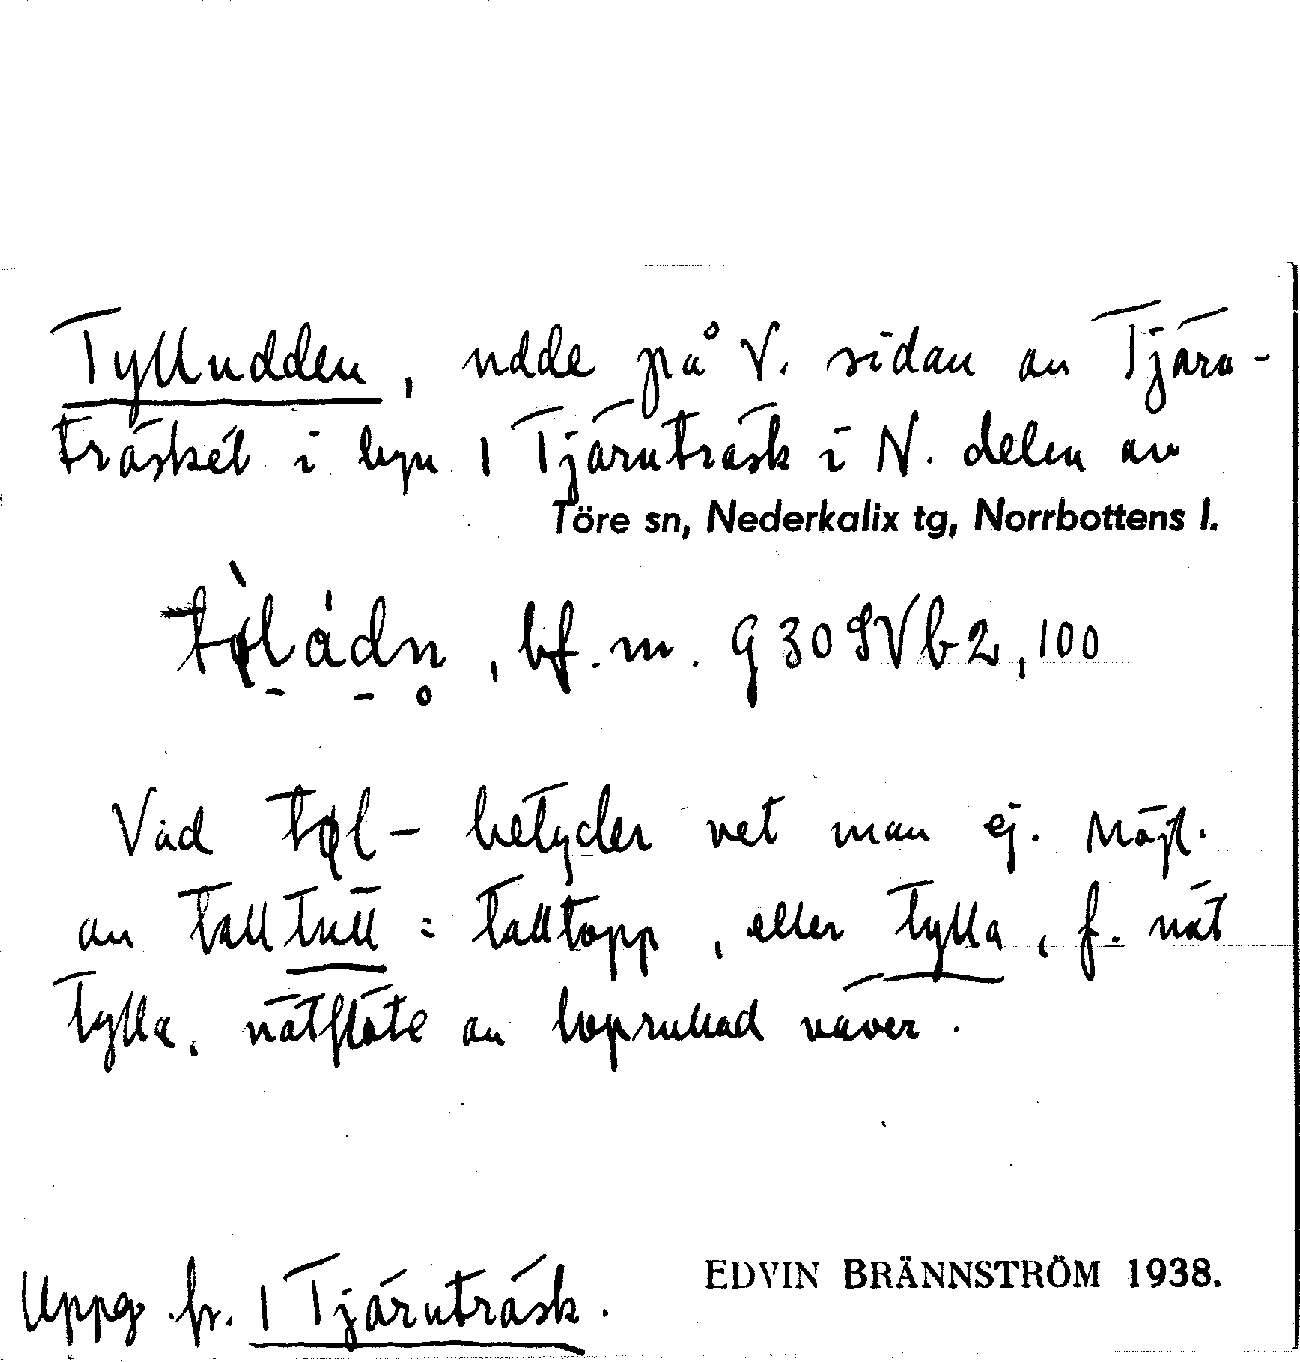 Tylludden, udde på V. sidan av Tjäru-
träsket i byn 1 Tjäruträsk i N. delen av
Töre sn, Nederkalix tg, Norrbottens l.
bf. m. g 30 SVb 2, 100
Vad tøl- betyder vet man ej. Möjl.
av talltull = talltopp, eller tylla, f. nät
tylla, nätflöte av hoprullad näver.
Uppg. fr. 1 Tjäruträsk.
EDVIN BRÄNNSTRÖM 1938.